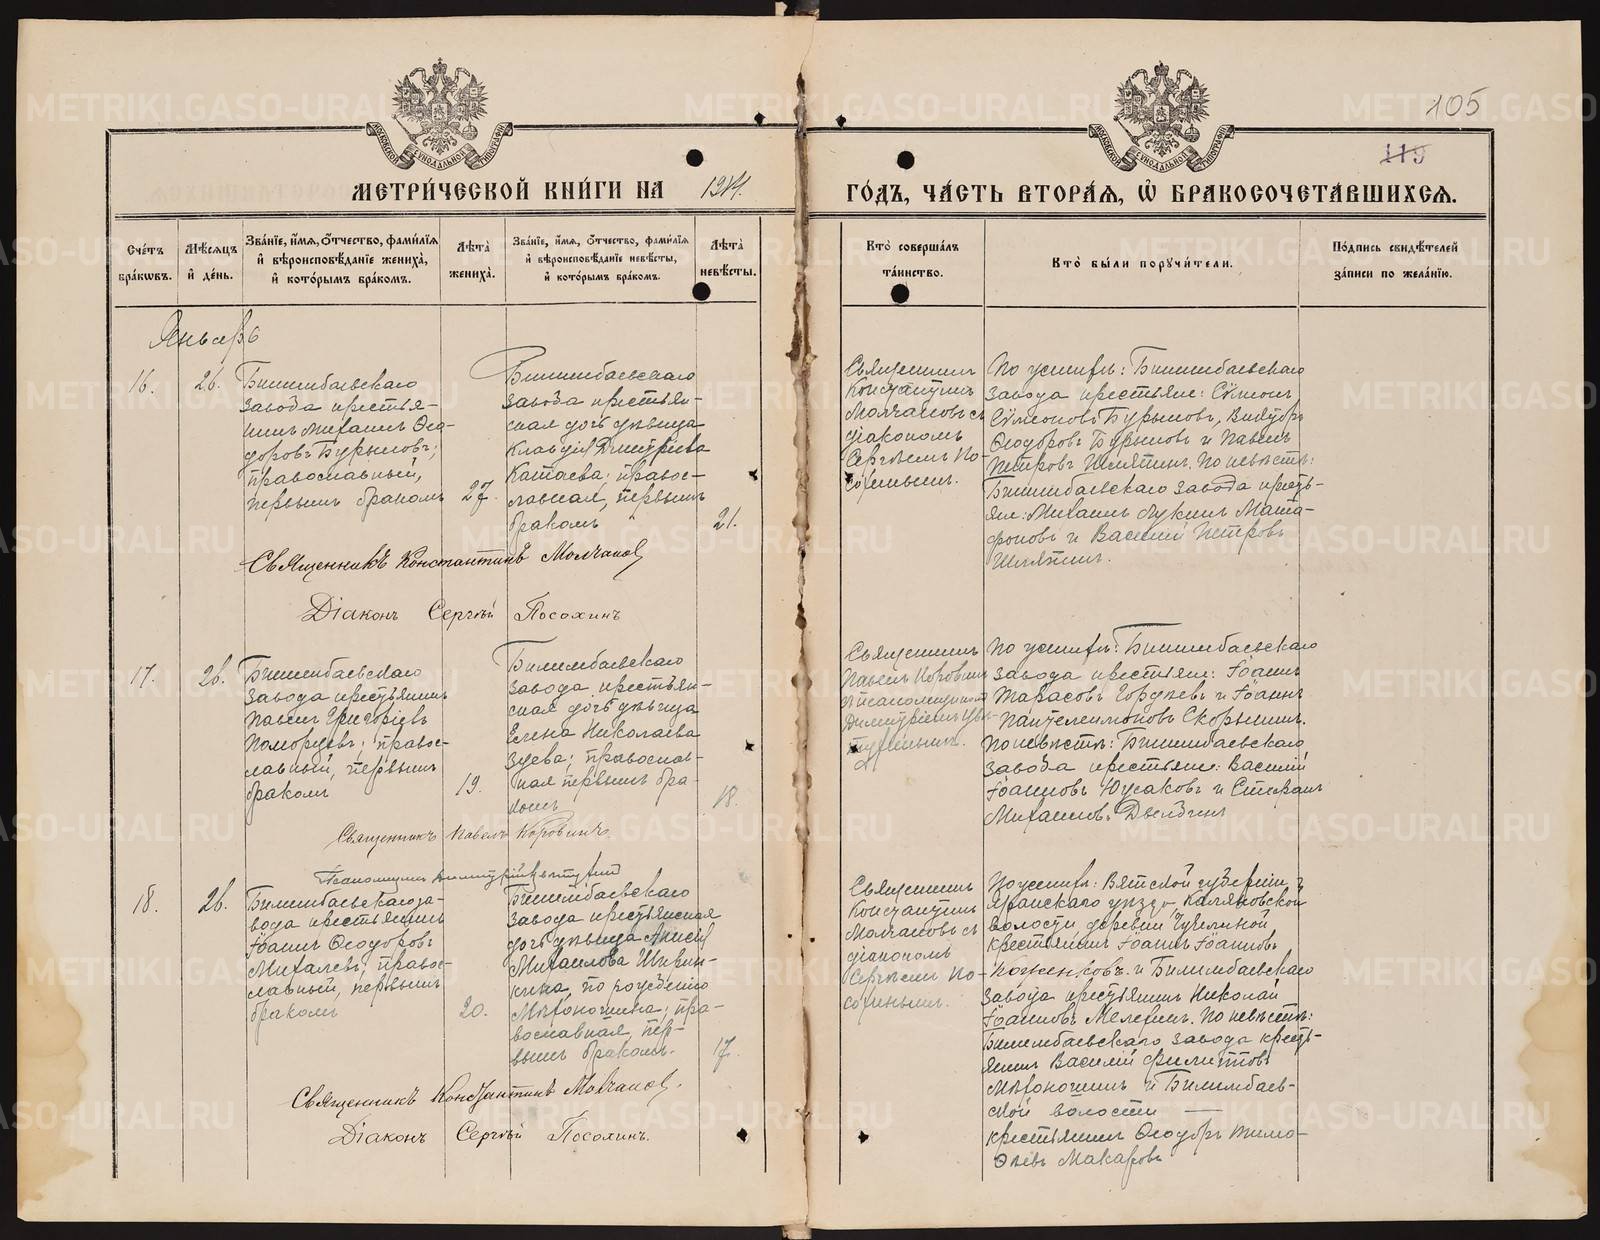 105
119
МОСКОВСКОЙ СѴНОДАЛЬНОЙ ТИПОГРАФІИ
МОСКОВСКОЙ СѴНОДАЛЬНОЙ ТИПОГРАФІИ
МЕТРИ́ЧЕСКОЙ КНИ́ГИ НА 1914. ГО́ДЪ, ЧА́СТЬ ВТОРА́Ѧ, Ѽ БРАКОСОЧЕТА́ВШИХСѦ.
Сче́тъ бра́кѡвъ.
Мѣ́сѧцъ и҆ де́нь.
Зва́нїе, и҆́мѧ, ѻ҆́тчество, фами́лїѧ и҆ вѣроисповѣ́данїе жениха̀, и҆ кото́рымъ бра́комъ.
Лѣ́та̀ жениха̀.
Зва́нїе, и҆́мѧ, ѻ҆́тчество, фами́лїѧ и҆ вѣроисповѣ́данїе невѣ́сты, и҆ кото́рымъ бра́комъ.
Лѣ́та̀ невѣ́сты.
Кто̀ соверша́лъ та́инство.
Кто̀ бы́ли порꙋчи́тели.
По́дпись свидѣ́телей за́писи по жела́нїю.
Январь
16.
26.
Билимбаевскаго
завода крестья-
нинъ Михаилъ Ѳео-
доровъ Бурыловъ;
православный,
первымъ бракомъ
27.
Билимбаевскаго
завода крестьян-
ская дочь дѣвица
Клавдія Димитріева
Катаева; правос-
лавная, первымъ
бракомъ
21.
Священникъ
Константинъ
Молчановъ съ
діакономъ
Сергѣемъ По-
сохинымъ.
По женихѣ: Билимбаевскаго
завода крестьяне: Сѵмеонъ
Сѵмеоновъ Бурыловъ, Викторъ
Ѳеодоровъ Бурыловъ и Павелъ
Петровъ Шляпинъ. По невѣстѣ:
Билимбаевскаго завода кресть-
яне: Михаилъ Лукинъ Мата-
фоновъ и Василій Петровъ
Шляпинъ.
Священникъ Константинъ Молчановъ
Діаконъ Сергѣй Посохинъ
17.
26.
Билимбаевскаго
завода крестьянинъ
Павелъ Григоріевъ
Поморцевъ; правос-
лавный, первымъ
бракомъ
19.
Билимбаевскаго
завода крестьян-
ская дочь дѣвица
Елена Николаева
Зуева; православ-
ная первымъ бра-
комъ
18.
Священникъ
Павелъ Коровинъ
съ псаломщикомъ
Димитріемъ
По женихѣ: Билимбаевскаго
завода крестьяне: Іоаннъ
Тарасовъ и Іоаннъ
Пантелеимоновъ Скорынинъ.
По невѣстѣ: Билимбаевскаго
завода крестьяне: Василій
Іоанновъ Юсаковъ и Стефанъ
Михаиловъ
Священникъ Павелъ Коровинъ
Псаломщикъ Димитрій
18.
26.
Билимбаевскаго за-
вода крестьянинъ
Іоаннъ Ѳеодоровъ
Михалевъ; правос-
лавный, первымъ
бракомъ
20.
Билимбаевскаго
завода крестьянская
дочь дѣвица Анисія
Михаилова Ширин-
кина, по рожденію
Мѣхоношина; пра-
вославная, пер-
вымъ бракомъ.
17.
Священникъ
Константинъ
Молчановъ съ
діакономъ
Сергѣемъ По-
сохинымъ.
По женихѣ: Вятской губерніи,
Яранскаго уѣзда Каляновской
волости деревни
крестьянинъ Іоаннъ Іоанновъ
Коженковъ и Билимбаевскаго
завода крестьянинъ Николай
Іоанновъ Мелехинъ. По невѣстѣ:
Билимбаевскаго завода кресть-
янинъ Василій Филипповъ
Мѣхоношинъ и Билимбаев-
ской волости —
крестьянинъ Ѳеодоръ Тимо-
ѳеевъ Макаровъ
Священникъ Константинъ Молчановъ.
Діаконъ Сергѣй Посохинъ.
METRIKI.GASO-URAL.RU